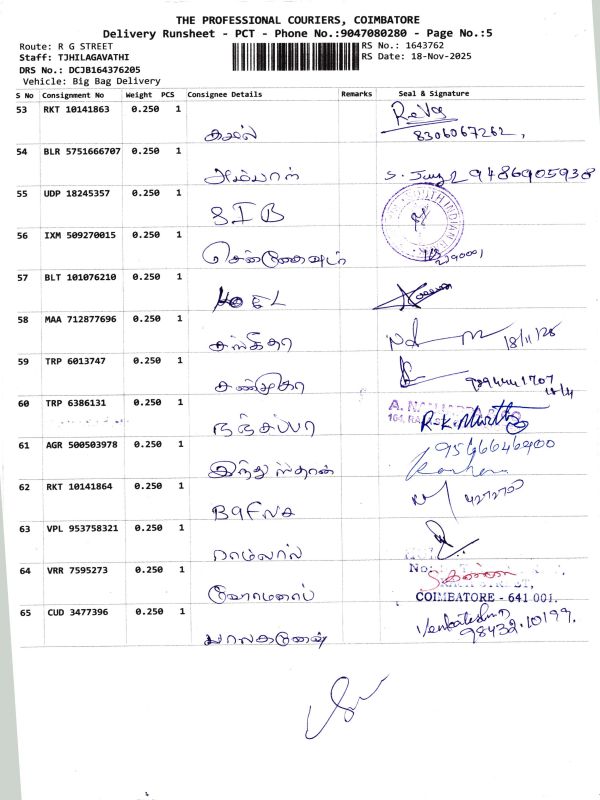 THE PROFESSIONAL COURIERS, COIMBATORE
Delivery Runsheet - PCT - Phone No.:9047080280 - Page No.:5
Route: R G STREET
RS No.: 1643762
Staff: TJHILAGAVATHI
RS Date: 18-Nov-2025
DRS No.: DCJB164376205
Vehicle: Big Bag Delivery
S No Consignment No Weight PCS Consignee Details Remarks Seal & Signature
53 RKT 10141863 0.250 1
கமல் 8306067262,
54 BLR 5751666707 0.250 1
அம்பாள் 9486905938
55 UDP 18245357 0.250 1
SIB
56 IXM 509270015 0.250 1
57 BLT 101076210 0.250 1
58 MAA 712877696 0.250 1
சங்கீதா 18/11/25
59 TRP 6013747 0.250 1
சண்முகா
60 TRP 6386131 0.250 1
நஞ்சப்பா
61 AGR 500503978 0.250 1
இந்துஸ்தான் 9566646900
62 RKT 10141864 0.250 1
63 VPL 953758321 0.250 1
ராம்லால்
64 VRR 7595273 0.250 1
COIMBATORE - 641 001.
65 CUD 3477396 0.250 1
பாலகருணன் Venkatesh
98432.10199.